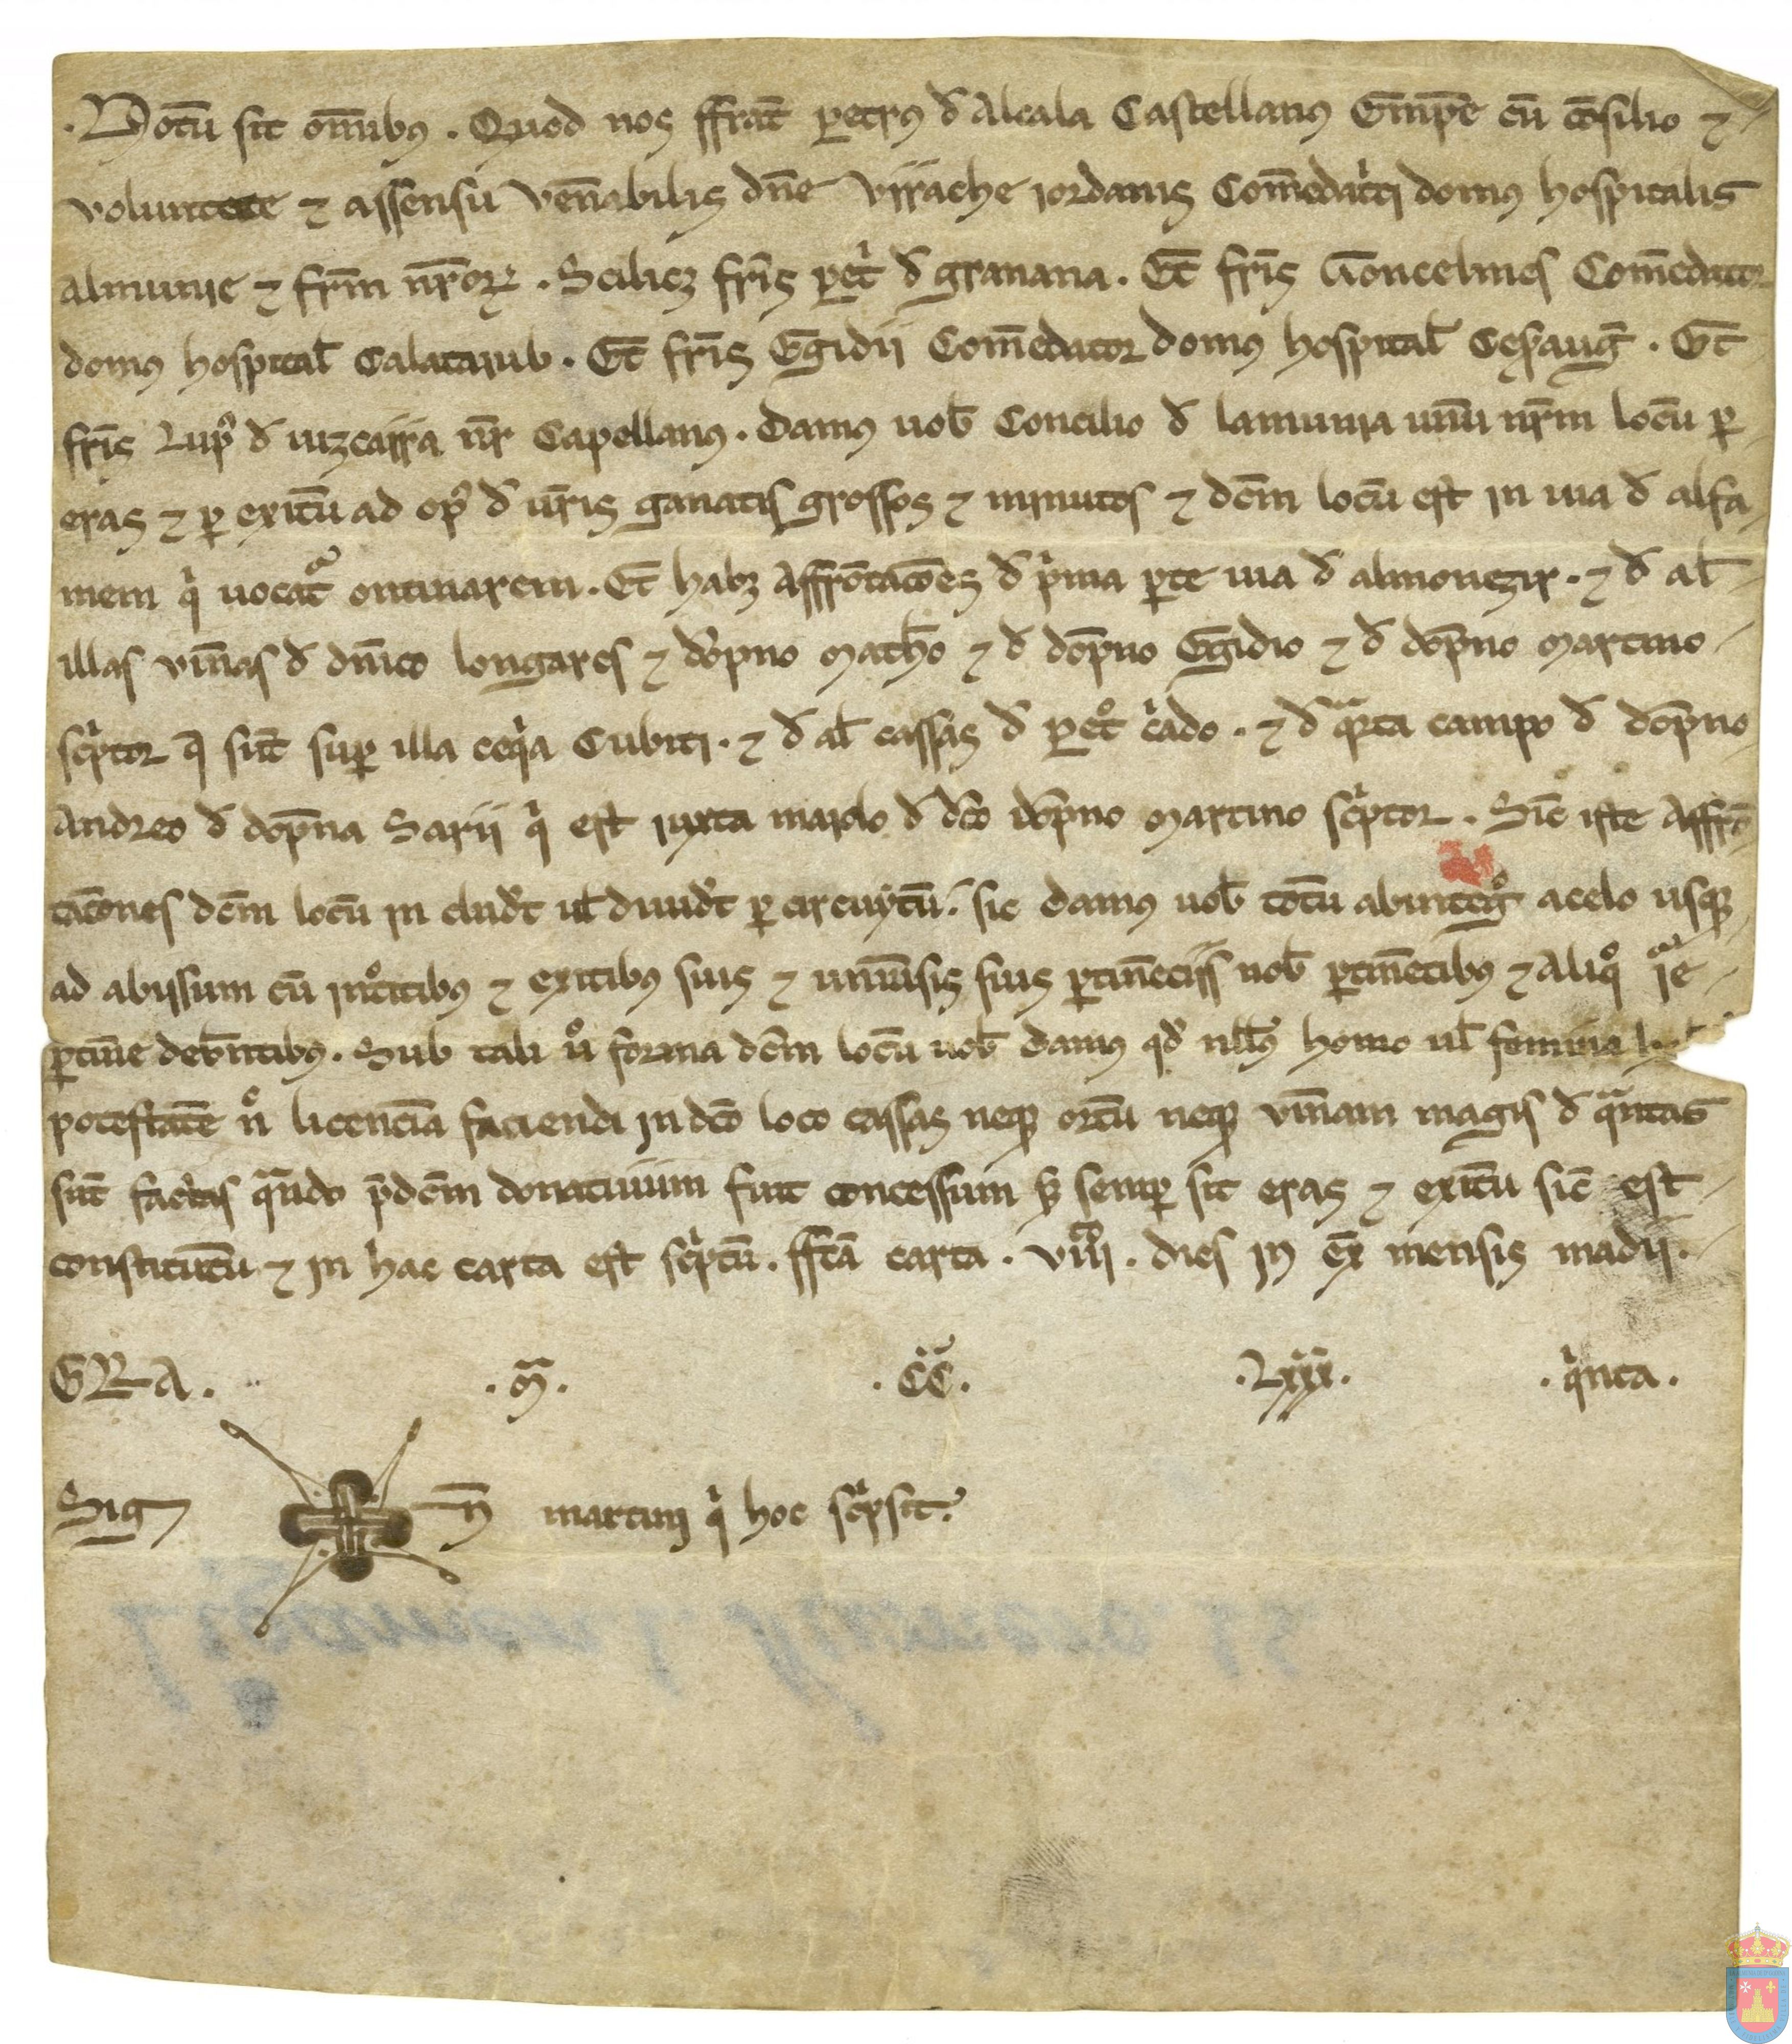 . Notū sit om̄ibus . Quod nos ffrat̄ petrus đ Alcala Castellanus Emp̄e cū cōsilio ⁊
voluntate ⁊ assensu ven̄abilis dn̄e Urrache iordanis Com̄edat'ci domus hospitalis
almunie ⁊ frm̄ nr̄oꝝ . Scilicꝫ fr̄is pet' đ granana . Et̄ fr̄is Goncelmes Com̄edator
domus hospital̄ Calataiub . Et̄ fr̄is Egidii Com̄edator domus hospital̄ Cesarauḡ . Et̄
fr̄is Lup' đ uizcarra nr̄ Capellanus . Damus uob̄ Concilio đ lamunia unū nr̄m locū ꝑ
eras ⁊ ꝑ exitū ad op' đ ur̄is ganatis grossos ⁊ minutos ⁊ dc̄m locū est in uia đ alfa
mem q' uocat' ontinarem . Et̄ habꝫ Affrōtacōes đ p'ma ꝑte uia đ almonezir . ⁊ đ al̄
illas vin̄as đ dn̄ico longares ⁊ dōpno Math̄o ⁊ đ dōpno Egidio ⁊ đ dōpno Martino
sc'ptor q̄ sūt suꝑ illa ceq'a Cubiti . ⁊ đ al̄ cassas đ pet° c'ado . ⁊ đ qͣrta campo đ dōpno
Andreo đ dōpna Sarii q' est iuxta maiolo đ dc̄o dōpno Martino sc'ptor . Sic̄ iste Affrō
tac̄ones dc̄m locū in cludūt ul̄ diuidūt ꝑ circuytū . sic damus uob̄ totū abinteg° acelo usqꝫ
ad abissum cū int°itibus ⁊ exitibus suis ⁊ uniu'sis suis ꝑtinēciis uob̄ ꝑtinētibus ⁊ Aliq°
ꝑtin̄e deb̄ntibus . Sub tali u° forma dc̄m locū uob̄ damus qđ nll̄us homo ul̄ femina
potestatē n° licencīa faciendi in dc̄o loco cassas neqꝫ ortū neqꝫ vin̄am magis đ qͣntas
sūt factas qͣndo p̄dc̄m donatiuum fuit concessum sꝫ semꝑ sit eras ⁊ exitū sic̄ est
constitutū ⁊ in hac carta est sc'ptū . ffc̄ā carta . viiij . dies in ex̄ mensis madii .
ERA . . M . . CC . . Lxxx . . q'nta .
Sig n̄ martini q' hoc sc'psit .